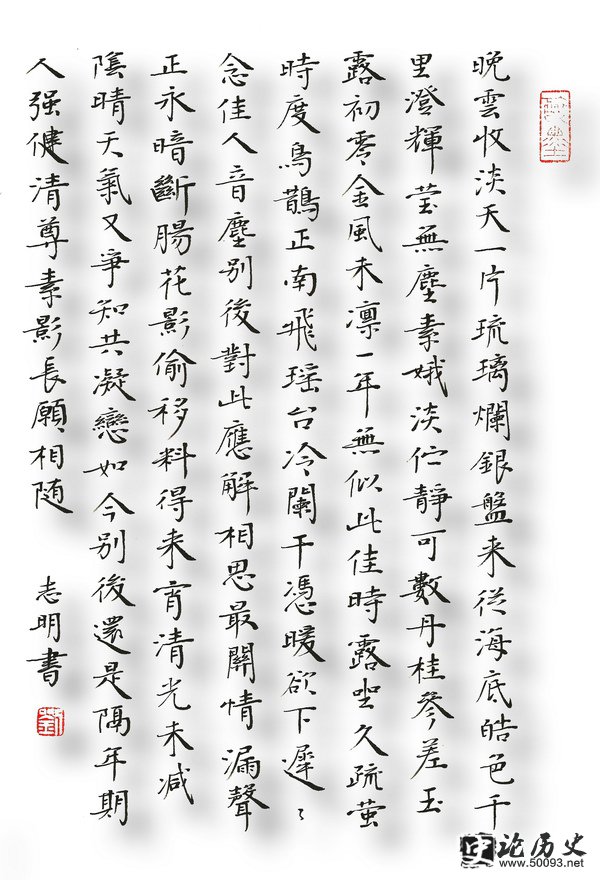 晚雲收淡天一片琉璃爛銀盤来從海底皓色千
里澄輝莹無塵素娥淡伫靜可數丹桂參差玉
露初零金風未凛一年無似此佳時露坐久疏萤
時度烏鵲正南飛瑶台冷闌干憑暖欲下遲〻
念佳人音塵别後對此應解相思最關情漏聲
正永暗斷腸花影偷移料得来宵清光未减
陰晴天氣又爭知共凝戀如今别後還是隔年期
人强健清尊素影長願相随
志明書
论历史
www.50093.net